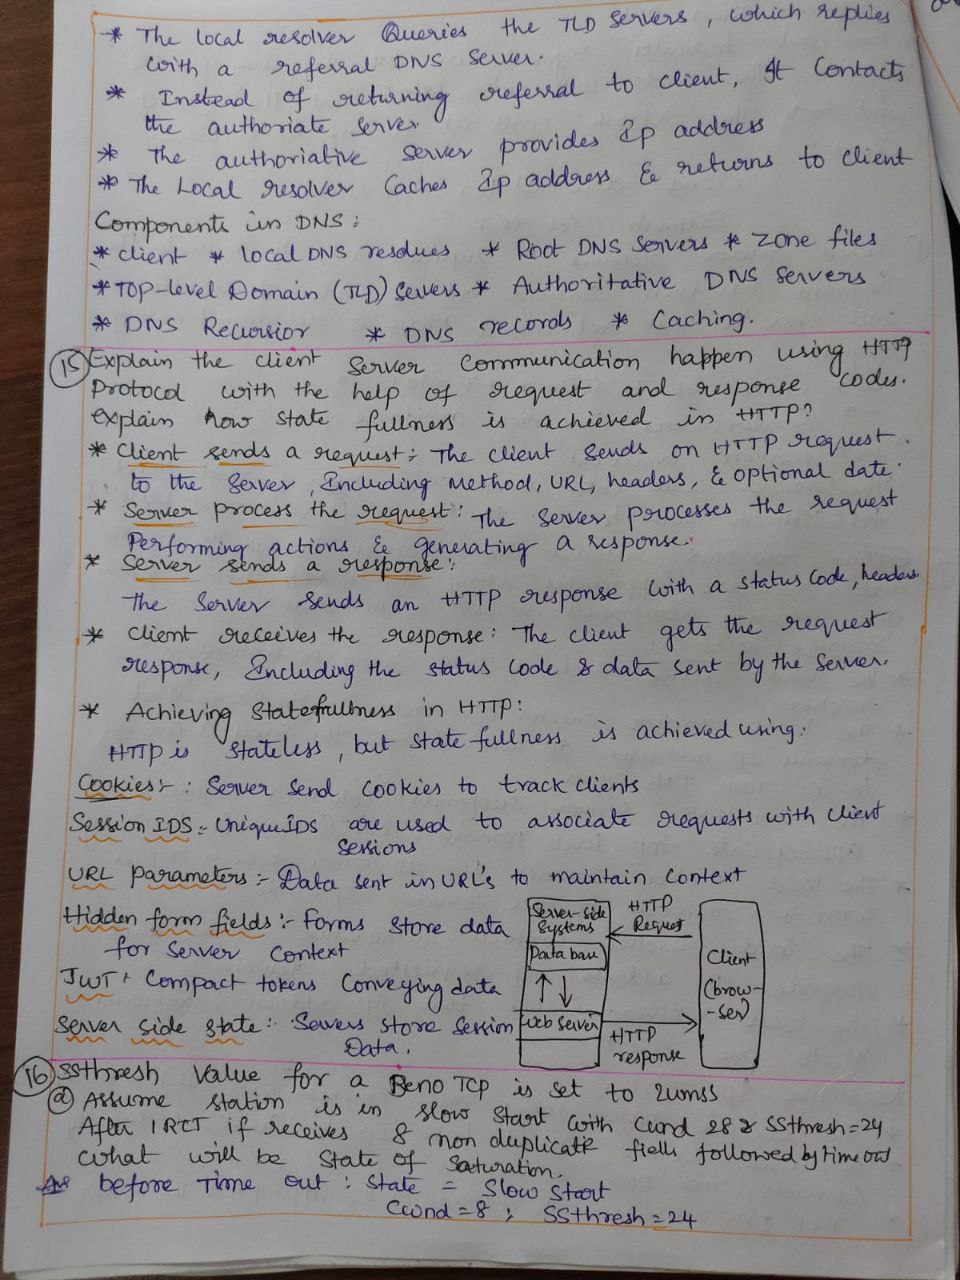 * The local resolver Queries the TLD Servers, which replies
with a referral DNS server.
* Instead of returning referral to client, It Contacts
the authoriate Server
* The authoriative Server provides Ip address
* The Local resolver Caches Ip address & returns to client
Components in DNS:
* client * local DNS resdues * Root DNS Servers * Zone files
* TOP-level Domain (TLD) Severs * Authoritative DNS Servers
* DNS Recursior * DNS records * Caching.
15 Explain the client Server Communication happen using HTTP
Protocol with the help of request and response codes.
explain how state fullness is achieved in HTTP?
* Client sends a request: The client Sends on HTTP request.
to the Server, Including Method, URL, headers, & optional date.
* Server process the request: The Server processes the request
Performing actions & generating a response.
* Server sends a response:
The Server Sends an HTTP response with a status code, headers
* Client receives the response: The client gets the request
response, Including the status code & data sent by the Server.
* Achieving Statefullness in HTTP:
HTTP is Stateless, but state fullness is achieved using:
Cookies:- : Server Send Cookies to track clients
Session IDS:- Unique IDS are used to associate requests with client
Sessions
URL Parameters:- Data sent in URL's to maintain Context
Hidden form fields:- Forms Store data
for Server Context
JWT: Compact tokens Conveying data
Server side state:- Severs store Session
Data.
Server-side
Systems
Data base
Web Server
HTTP
Request
HTTP
response
Client
(brow-
-ser)
16 SSthresh Value for a Reno TCP is set to 24mss
a Assume station is in slow Start with Cwnd 28 & SSthresh=24
After 1RTT if receives 8 non duplicate followed by time out
what will be State of Saturation.
Ans before Time out: State = Slow Start
Cwnd = 8 ; SSthresh = 24